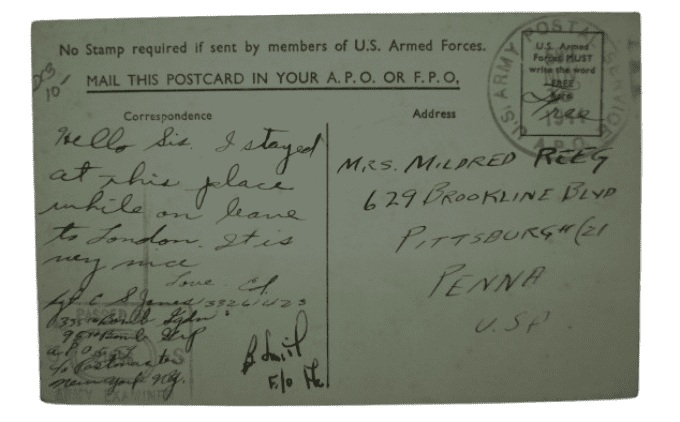 No Stamp required if sent by members of U.S. Armed Forces.
MAIL THIS POSTCARD IN YOUR A.P.O. OR F.P.O.
U.S. ARMY POSTAL SERVICE
A.P.O.
U.S. Armed
Forces MUST
write the word
FREE
Free
Correspondence
Hello Sis. I stayed
at this place
while on leave
to London. It is
very nice
Love. Ed
Sgt C S Jones 33261423
335th Bomb Sqdn
95th Bomb Grp
A.P.O. 557
c/o Postmaster
New York N.Y.
PASSED
ARMY EXAMINER
F/O
Address
MRS. MILDRED REEG
629 BROOKLINE BLVD
PITTSBURGH (21
PENNA